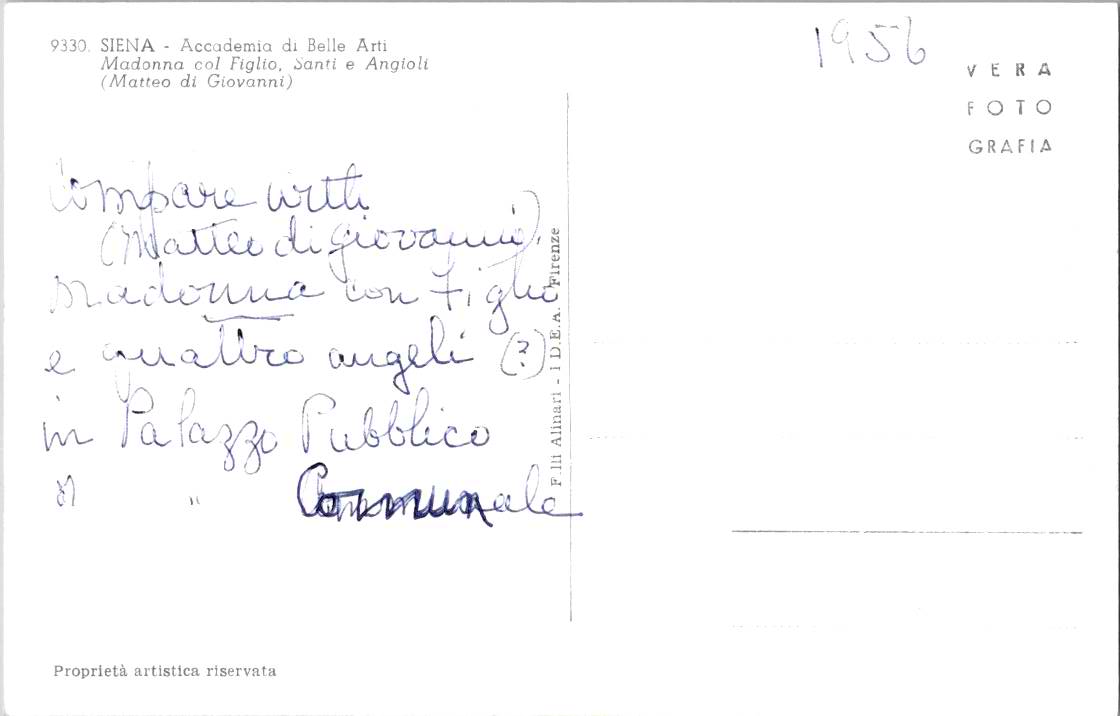 9330. SIENA - Accademia di Belle Arti
Madonna col Figlio, Santi e Angioli
(Matteo di Giovanni)
1956
VERA
FOTO
GRAFIA
Compare with
(Matteo di Giovanni),
Madonna con Figlio
e quattro angeli (?)
in Palazzo Pubblico
" Communale
F.lli Alinari - I.D.E.A. Firenze
Proprietà artistica riservata